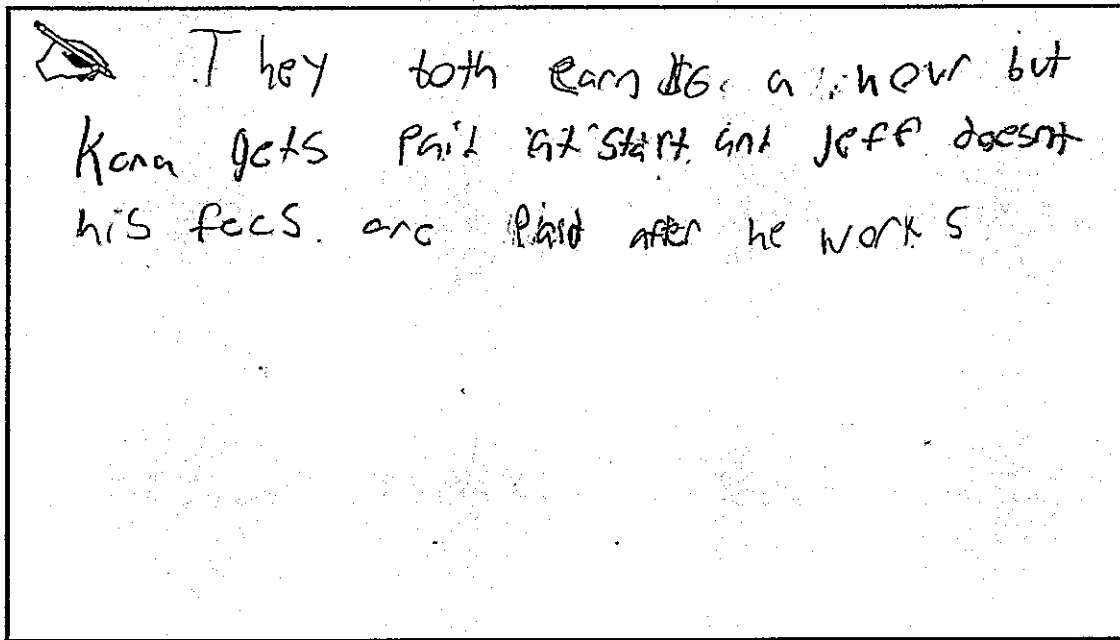 They both earn $6. a hour but
Kara gets paid at start and Jeff doesnt
his fees are paid after he works